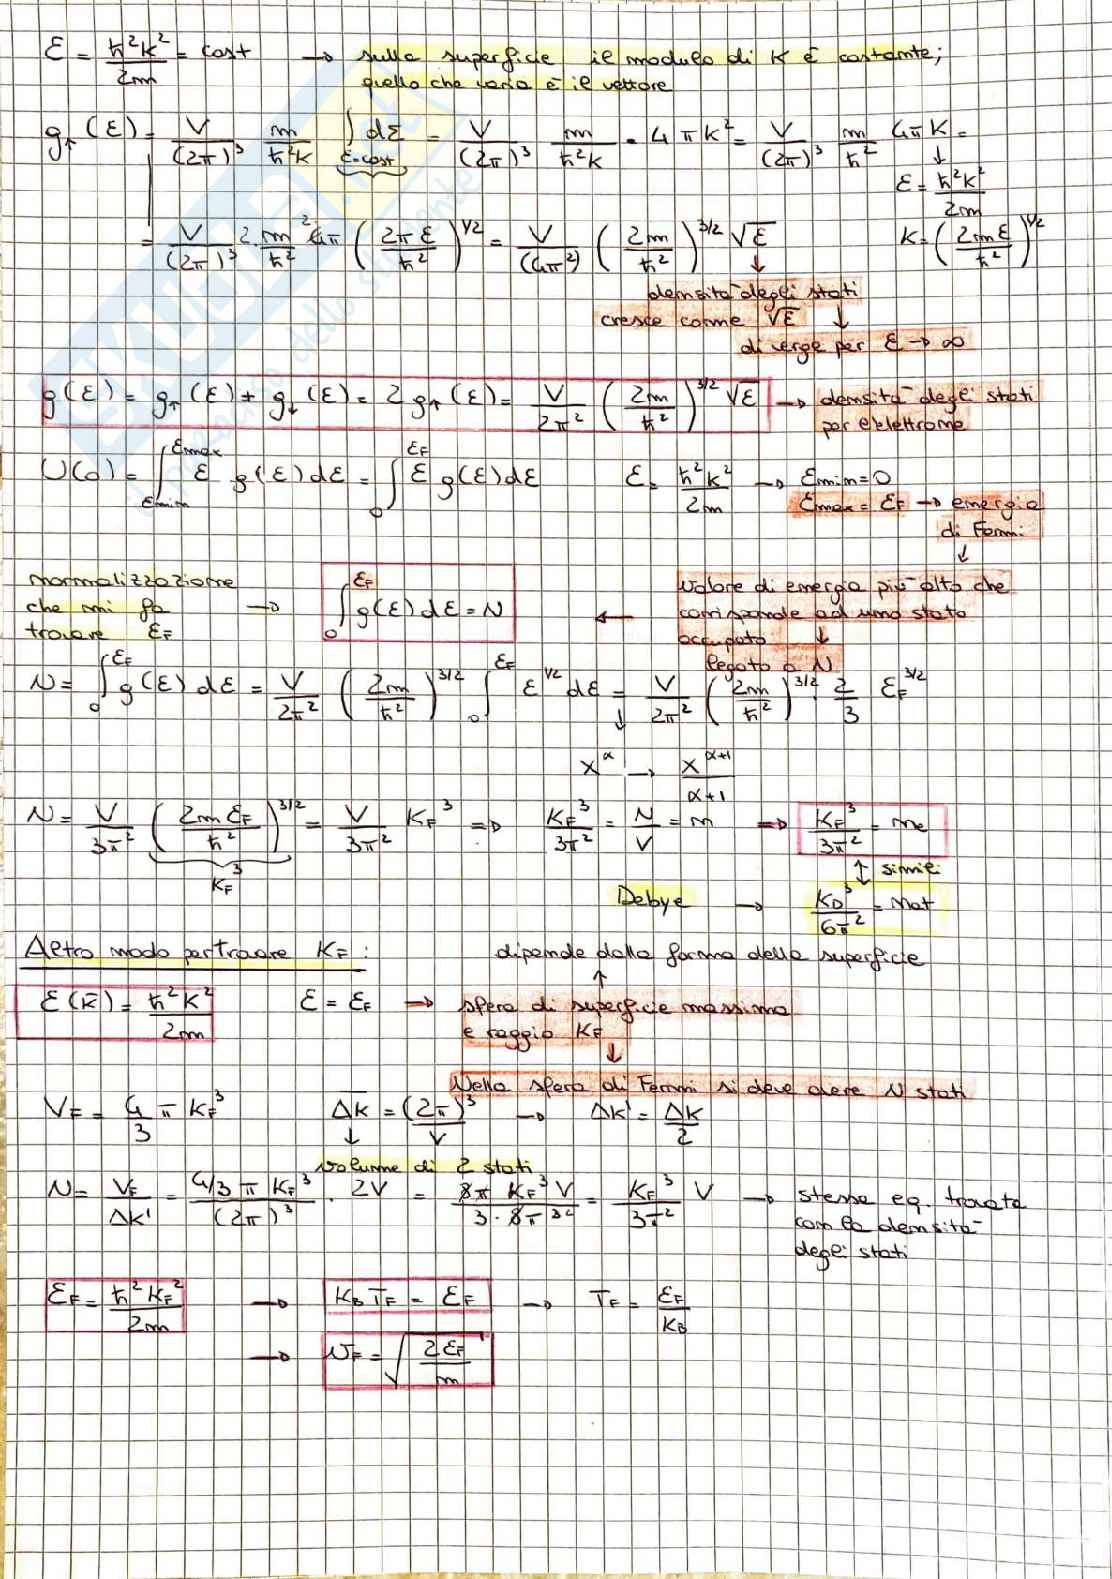 ε = ħ²k²/2m = cost → sulla superficie il modulo di K è costante;
quello che varia è il vettore
g↑(ε) = V/(2π)³ m/ħ²k ∫ε=cost dΣ = V/(2π)³ m/ħ²k · 4πk² = V/(2π)³ m/ħ² 4πk =
↓
ε = ħ²k²/2m
k = (2mε/ħ²)^1/2
= V/(2π)³ 2m/ħ² 2π (2π ε/ħ²)^1/2 = V/(4π²) (2m/ħ²)^3/2 √ε
↓
densità degli stati
cresce come √ε ↓
diverge per ε → ∞
g(ε) = g↑(ε) + g↓(ε) = 2g↑(ε) = V/2π² (2m/ħ²)^3/2 √ε → densità degli stati
per elettrone
U(0) = ∫εmin^εmax ε g(ε)dε = ∫0^εF ε g(ε)dε ε = ħ²k²/2m → εmin = 0
εmax = εF → energia
di Fermi
↓
normalizzazione
che mi fa → ∫0^εF g(ε)dε = N ←
trovare εF
valore di energia più alto che
corrisponde ad uno stato
occupato
↓
legato a N
N = ∫0^εF g(ε)dε = V/2π² (2m/ħ²)^3/2 ∫0^εF ε^1/2 dε = V/2π² (2m/ħ²)^3/2 · 2/3 εF^3/2
↓
x^α → x^(α+1)/(α+1)
N = V/3π² (2m εF/ħ²)^3/2 = V/3π² kF³ ⇒ kF³/3π² = N/V = n ⇒ kF³/3π² = ne
kF³
↕ simile
Debye → kD³/6π² = nat
Altro modo per trovare KF: dipende dalla forma della superficie
↑
ε(k̄) = ħ²k²/2m ε = εF → sfera di superficie massima
e raggio KF
↓
Nella sfera di Fermi si deve avere N stati
VF = 4/3 π kF³ Δk = (2π)³/V → Δk' = Δk/2
↓
volume di 2 stati
N = VF/Δk' = 4/3 π kF³/(2π)³ · 2V = 8π kF³ V/3·8π³² = kF³/3π² V → stessa eq. trovata
con la densità
degli stati
εF = ħ²kF²/2m → KB TF = εF → TF = εF/KB
→ vF = √(2εF/m)